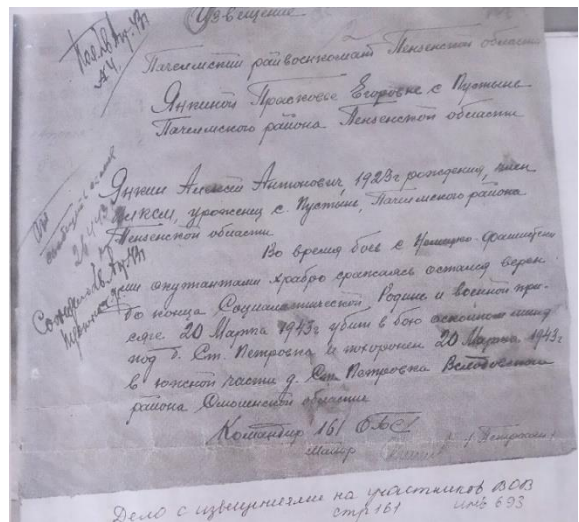 Извещение
Пачелмский райвоенкомат Пензенской области
Янкиной Прасковье Егоровне с Пустынь
Пачелмского района Пензенской области
Янкин Алексей Антонович, 1923г рождения, член
ВЛКСМ, уроженец с. Пустынь, Пачелмского района
Пензенской области
Во время боев с Немецко-фашистски
ми оккупантами храбро сражаясь остался верен
до конца Социалистической Родине и военной при-
сяге 20 Марта 1943г убит в бою осколком мины
под д. Ст. Петровка и похоронен 20 Марта 1943г
в южной части д. Ст. Петровка
района Смоленской области
Командир 161 ОБС
Майор
Дело с извещениями на участников ВОВ
стр 161 инв 693